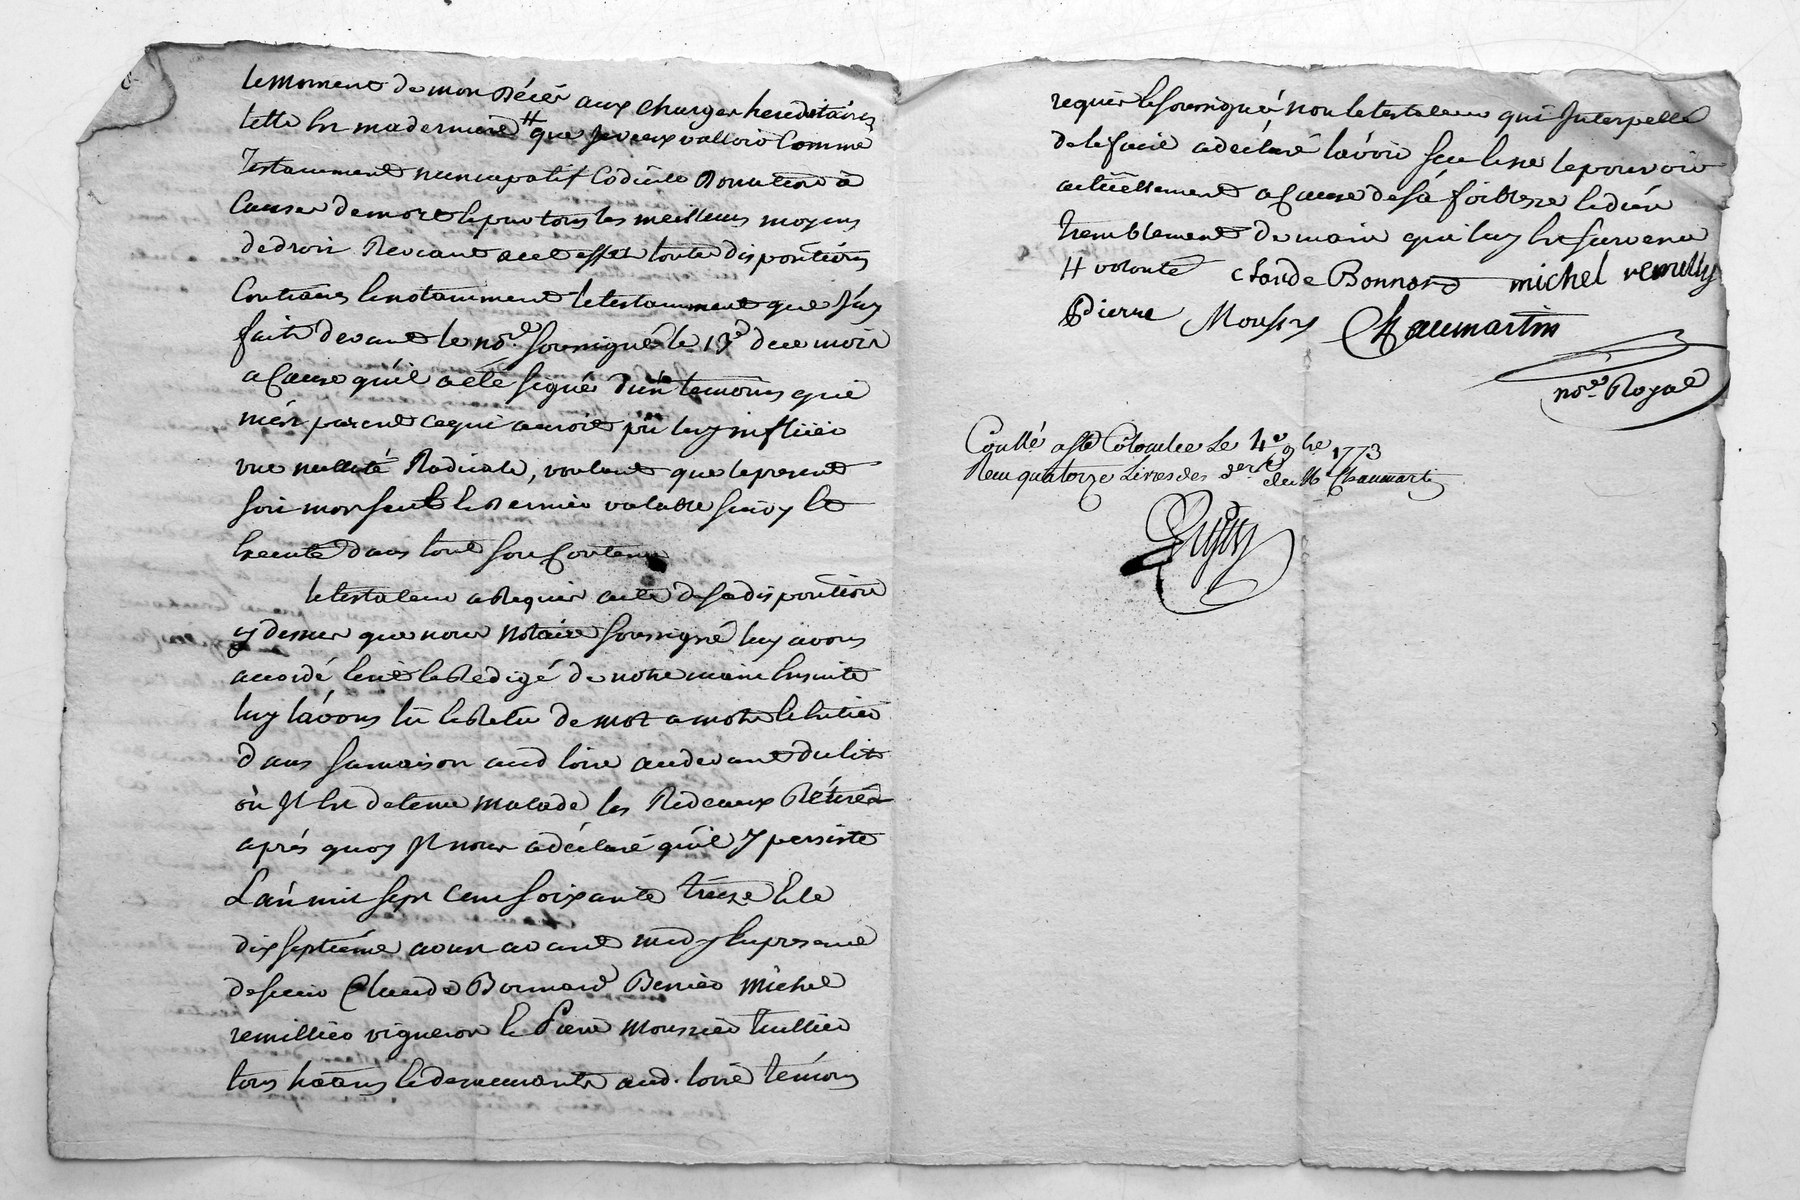 le moment de mon décés aux charges hereditaires
cette est ma derniere # que je veux valloir comme
Testament nuncupatif Codicile Donation à
Cause de mort et par tous les meilleurs moyens
de droit Revocant a cet effet toutes dispositions
Contraires et notamment le testament que j'ay
fait devant le nore soussigné le 13e de ce mois
a Cause qu'il a été signé d'un temoins qui
m'est parent ce qui auroit pû luy infliger
une nullité Radicale, voulant que le present
soit mon seul et dernier valable suivy et
Executé dans tout son Contenu
le testateur a Requis acte de sa disposition
cy dessus que nous notaire soussigné luy avons
accordé écrit et Redigé de notre main Ensuite
luy l'avons lû et Relu de mot a mot et entier
dans sa maison aud loire au devant du lit
où Jl est detenu malade les Rideaux Retirés
aprés quoy Jl nous a déclaré qu'il y persiste
L'an mil sept cent soixante treize et le
dix septiéme aoust avant midy En presence
de sieur Claude Bonnard Benier Michel
remillier vigneron et Pierre Moussier tuillier
tous habitans et demeurants aud. loire témoins
requis et soussignés non le testateur qui Jnterpellé
de le faire a déclaré l'avoir sçu et ne le pouvoir
actuellement a Cause de sa foiblesse et d'un
tremblement de main qui luy est survenu
# volonté Claude Bonnard michel remilly
Pierre Mousier Chaumartin
nore Royal
Conllé a Ste Colombe Le 4e 9bre 1773
Reçu quatorze Livres des de M Chaumartin